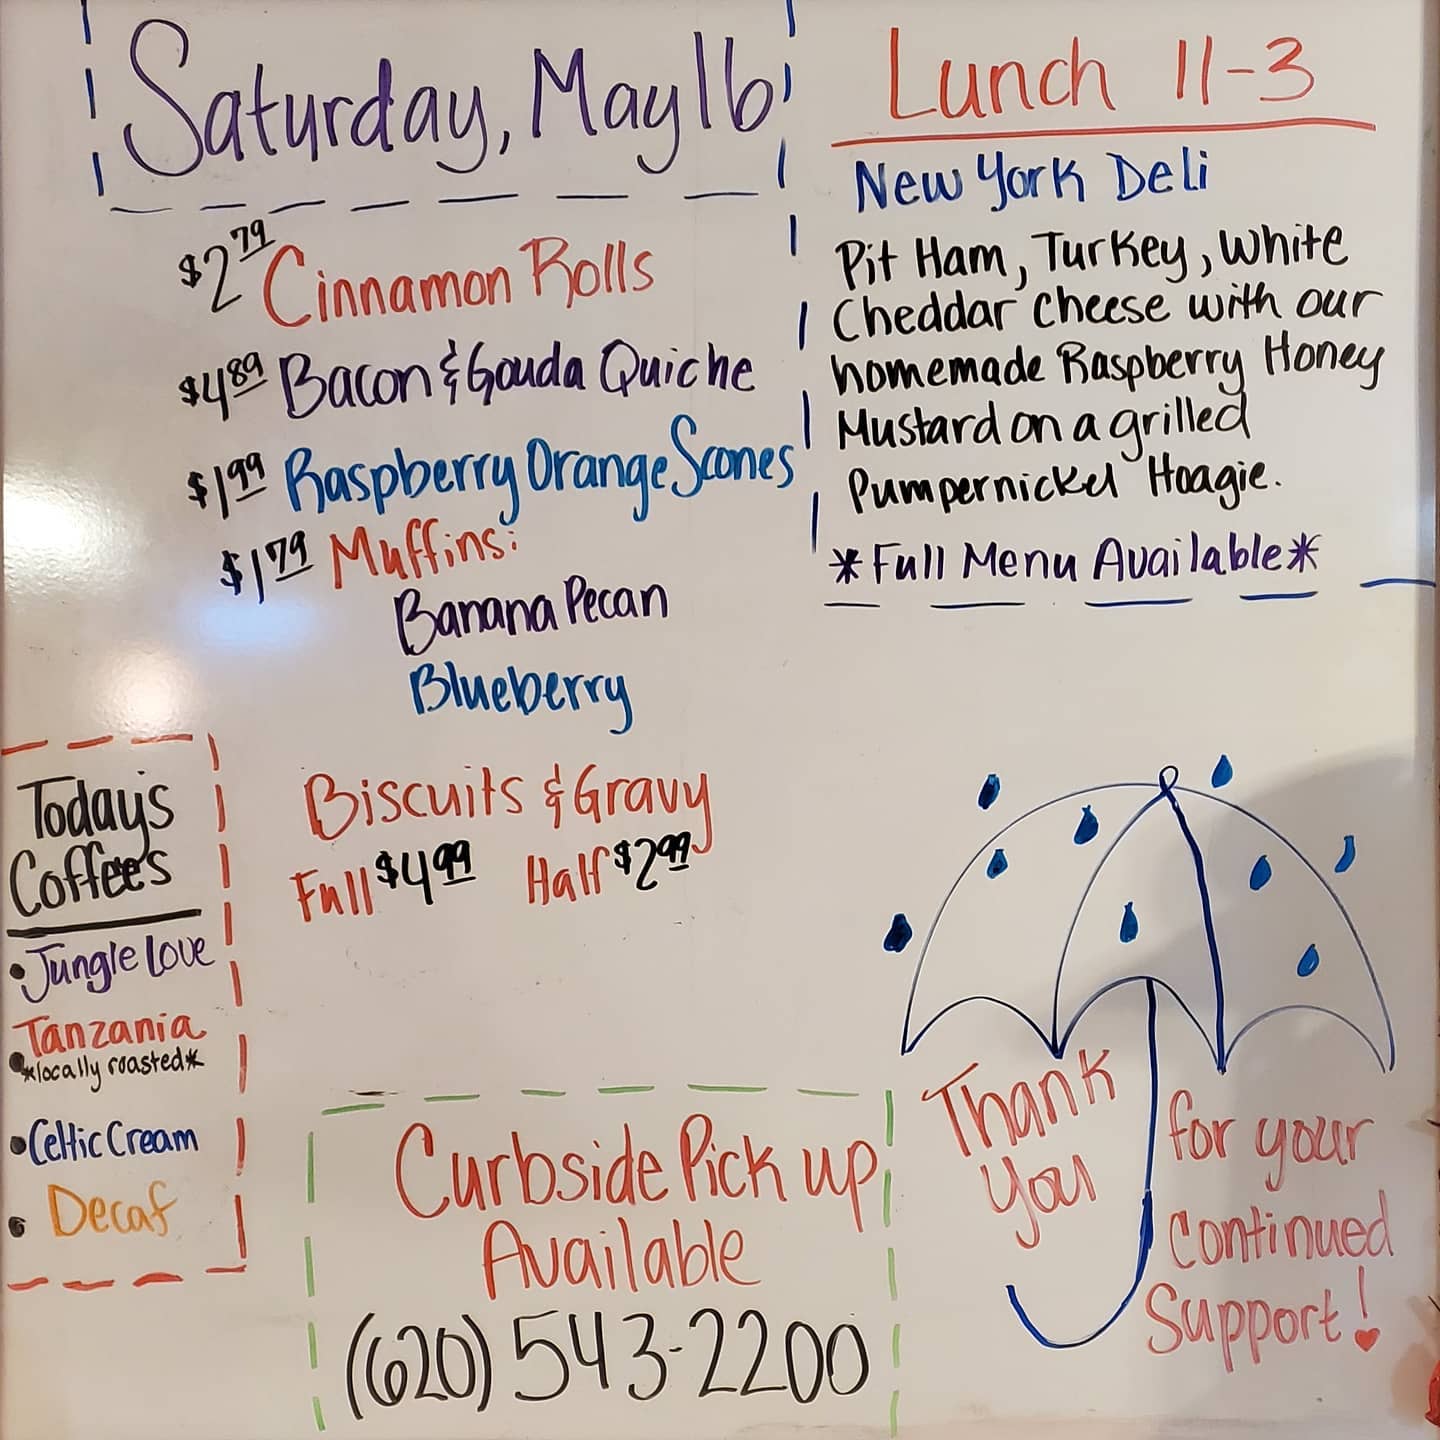 Saturday, May 16
$2.79 Cinnamon Rolls
$4.89 Bacon & Gouda Quiche
$1.99 Raspberry Orange Scones
$1.79 Muffins:
Banana Pecan
Blueberry
Biscuits & Gravy
Full $4.99 Half $2.99
Lunch 11-3
New York Deli
Pit Ham, Turkey, White
Cheddar cheese with our
homemade Raspberry Honey
Mustard on a grilled
Pumpernickel Hoagie.
*Full Menu Available*
Today's
Coffees
• Jungle Love
• Tanzania
*locally roasted*
• Celtic Cream
• Decaf
Curbside Pick up
Available
(620) 543-2200
Thank
you
for your
Continued
Support!